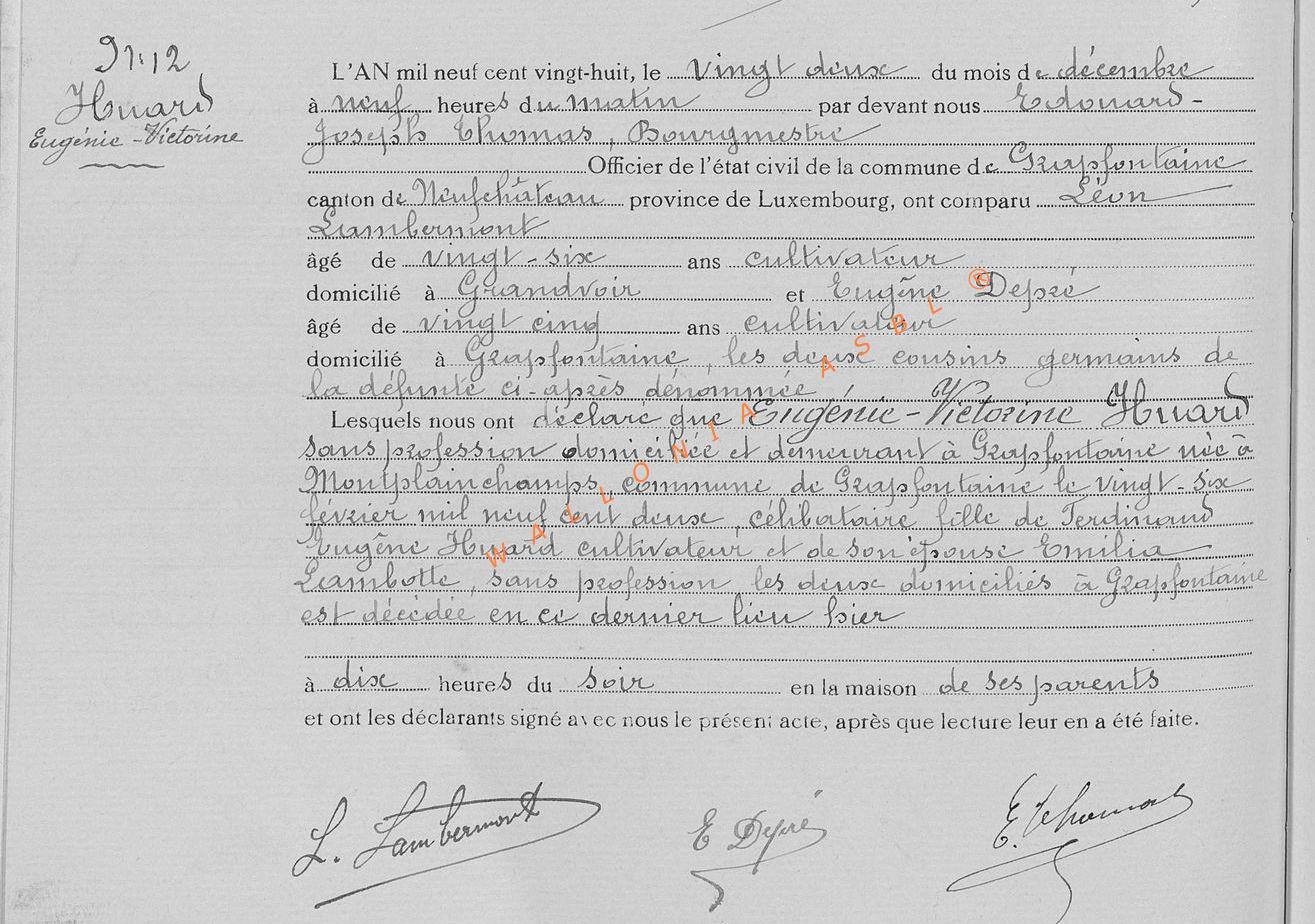 Nr. 12
Huard
Eugénie-Victorine
L'AN mil neuf cent vingt-huit, le vingt deux du mois de décembre
à neuf heures du matin par devant nous Edouard-
Joseph Thomas, Bourgmestre
Officier de l'état civil de la commune de Grapfontaine
canton de Neufchâteau province de Luxembourg, ont comparu Léon
Lambermont
âgé de vingt-six ans cultivateur
domicilié à Grandvoir et Eugène Depré
âgé de vingt cinq ans cultivateur
domicilié à Grapfontaine, les deux cousins germains de
la défunte ci-après dénommée,
Lesquels nous ont déclaré que Eugénie-Victorine Huard
sans profession domiciliée et demeurant à Grapfontaine née à
Montplainchamps, commune de Grapfontaine le vingt-six
février mil neuf cent deux, célibataire fille de Ferdinand
Eugène Huard cultivateur et de son épouse Emilia
Lambotte, sans profession les deux domiciliés à Grapfontaine
est décédée en ce dernier lieu hier
à dix heures du soir en la maison de ses parents
et ont les déclarants signé avec nous le présent acte, après que lecture leur en a été faite.
L. Lambermont E Depré E. Thomas
WALLONIA ASBL ©